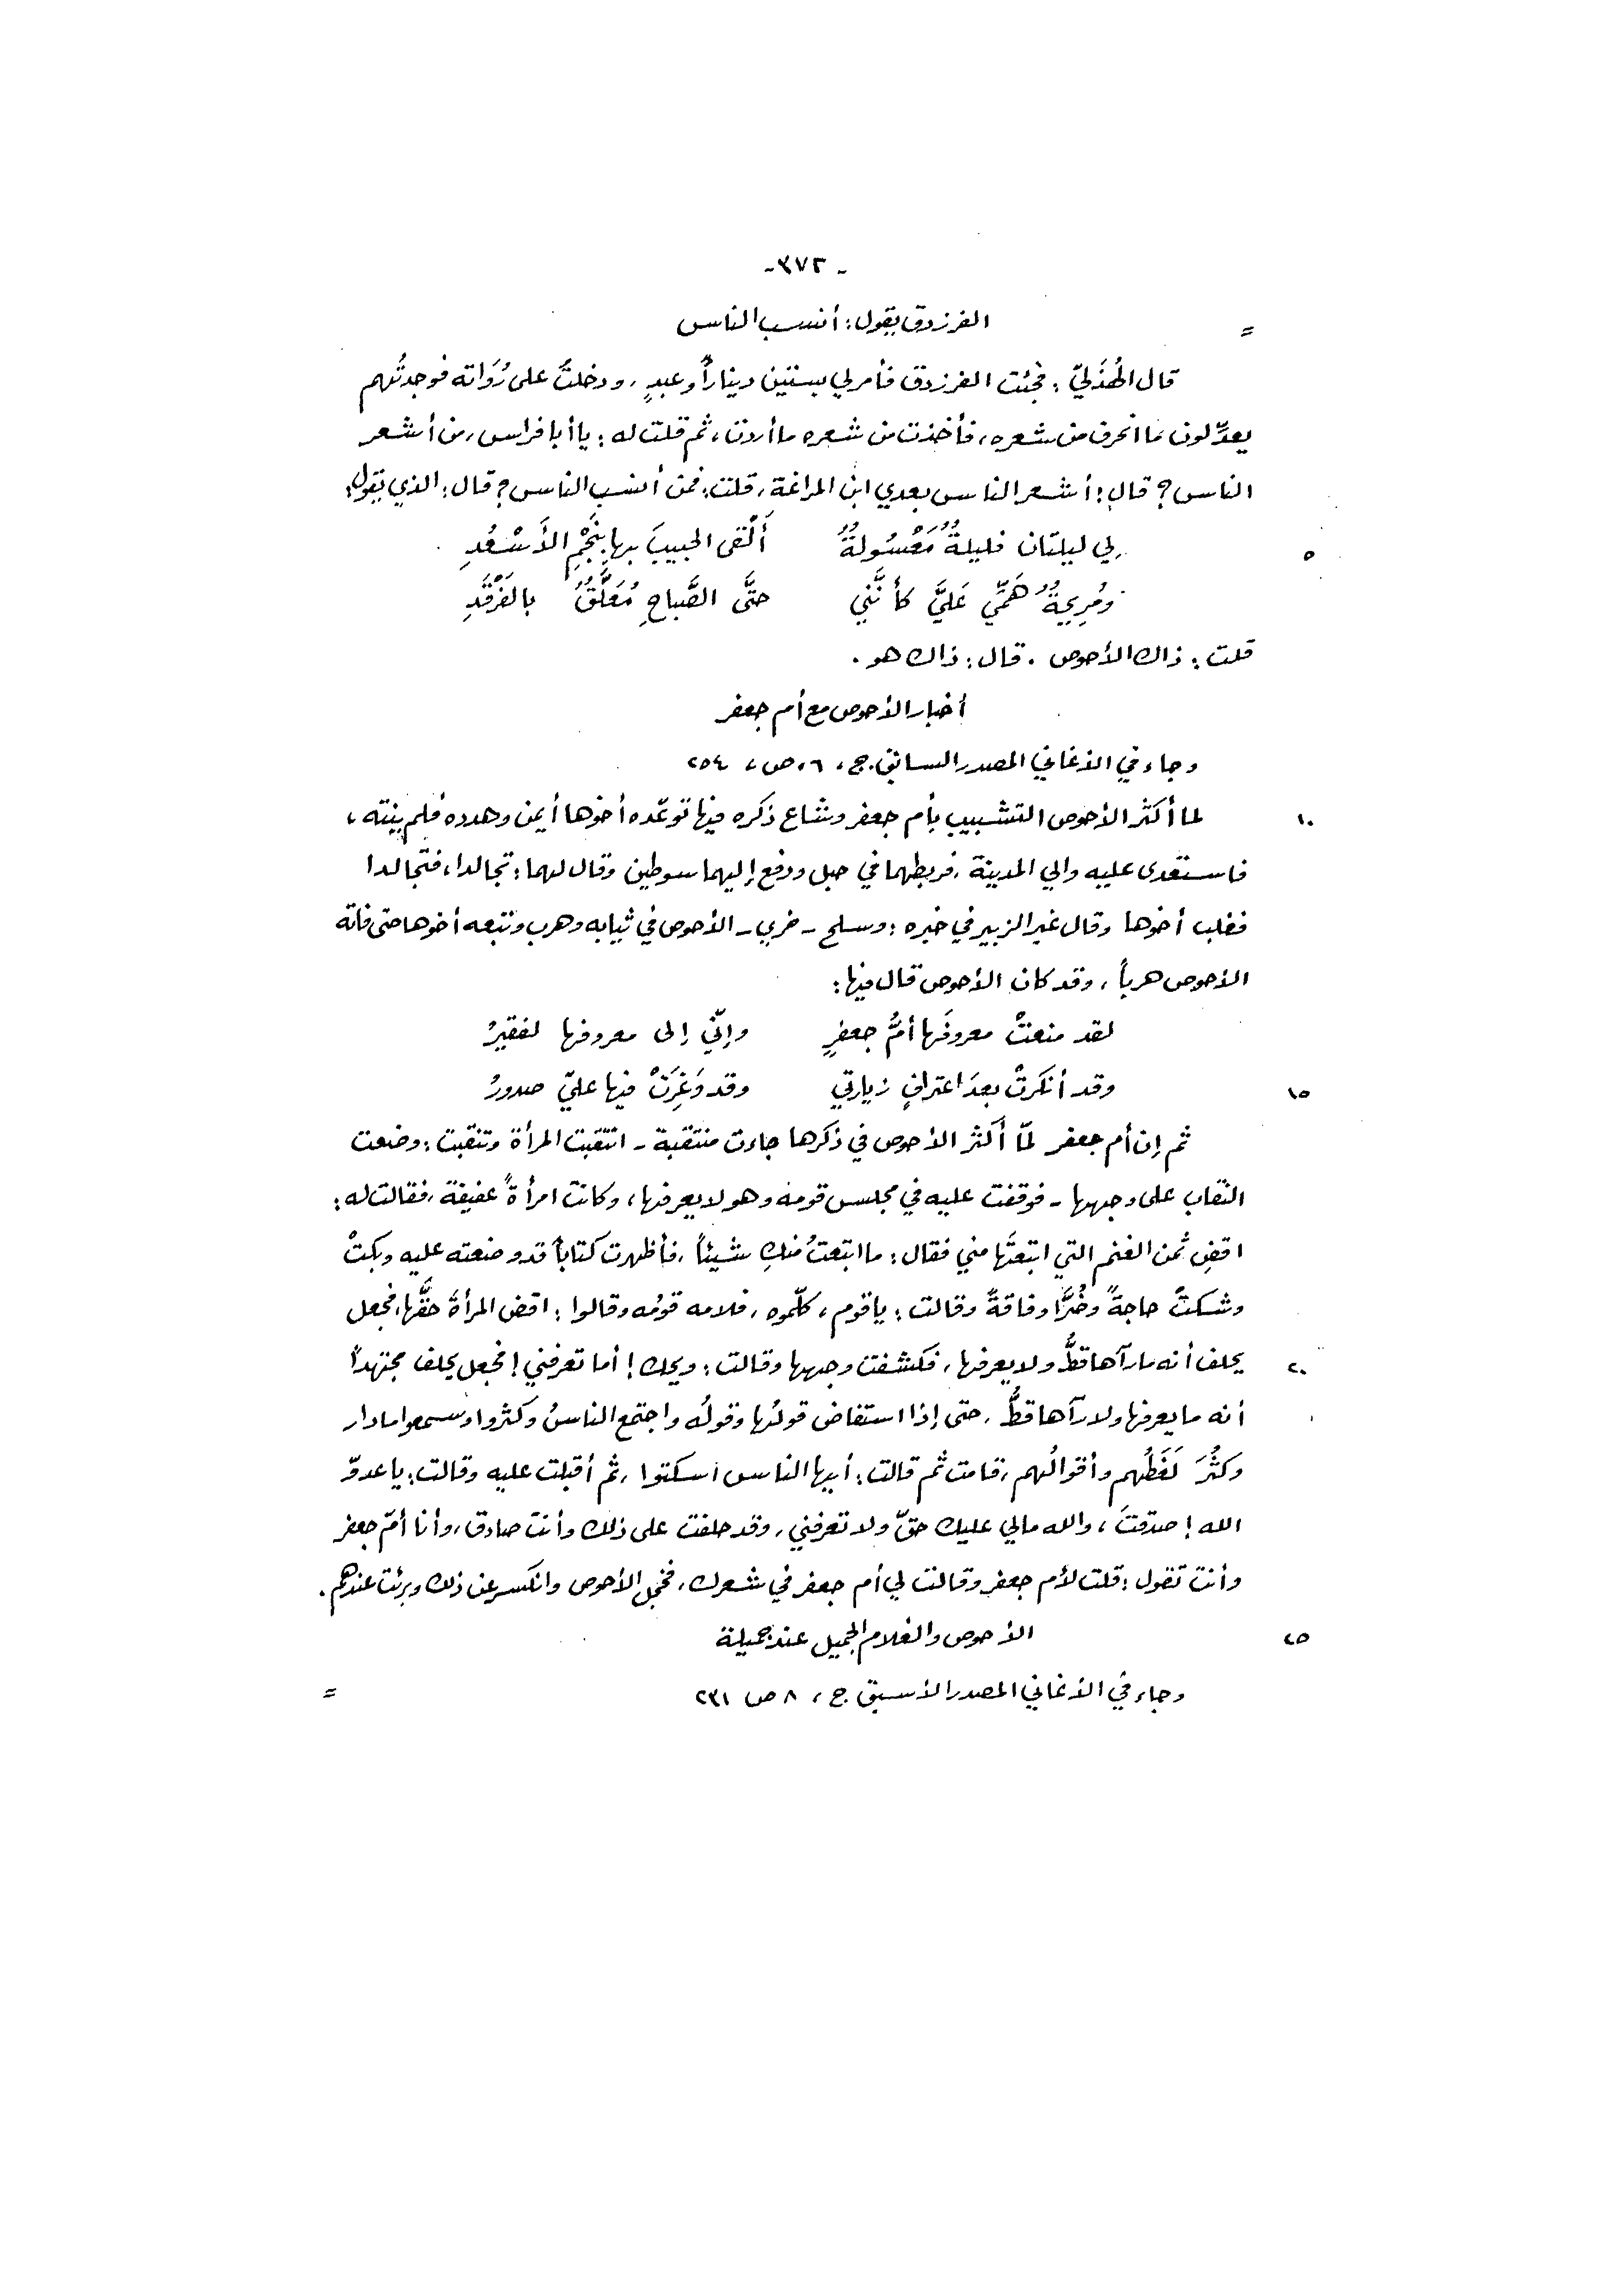 - ٣٧٢ -
= الفرزدق يقول : أنسب الناس
قال الهُذَليّ : فجئت الفرزدق فأمر لي بستين ديناراً وعبدٍ ، ودخلتُ على رُوَاته فوجدتُهم
يعدِّلون ما انحرف من شعره ، فأخذت من شعره ما أردت ، ثم قلت له : يا أبا فراس ، من أشعر
الناس ؟ قال : أشعر الناس بعدي ابن المراغة ، قلت : فمن أنسب الناس ؟ قال : الذي يقول :
٥ لي ليلتان فليلةٌ مَعْسُولةٌ أَلْقى الحبيبَ بها بِنَجْمِ الأَسْعُدِ
ومُرِيحةٌ هَمِّي عَليَّ كأنَّني حتَّى الصَّباحِ مُعَلَّقٌ بالفَرْقَدِ
قلت : ذاك الأحوص . قال : ذاك هو .
أخبار الأحوص مع أم جعفر
وجاء في الأغاني المصدر السابق . ج ، ٦ ، ص ، ٢٥٤
١٠ لما أكثر الأحوص التشبيب بأم جعفر وشاع ذكره فيها توعّده أخوها أيمن وهدده فلم ينته ،
فاستعدى عليه والي المدينة ، فربطهما في حبل ودفع إليهما سوطين وقال لهما : تجالدا ، فتجالدا
فغلب أخوها وقال غير الزبير في خبره : وسلح - خري - الأحوص في ثيابه وهرب وتبعه أخوها حتى فاته
الأحوص هرباً ، وقد كان الأحوص قال فيها :
لقد منعتْ معروفَها أمُّ جعفرٍ وإنّي إلى معروفها لفقيرُ
١٥ وقد أنكرتْ بعدَ اعترافٍ زيارتي وقد وَغِرَتْ فيها عليّ صدورُ
ثم إن أم جعفر لمّا أكثر الأحوص في ذكرها جاءت منتقبة - انتقبت المرأة وتنقبت : وضعت
النقاب على وجهها - فوقفت عليه في مجلس قومه وهو لا يعرفها ، وكانت امرأةً عفيفة ، فقالت له :
اقضِ ثمن الغنم التي ابتعتَها مني فقال : ما ابتعتُ منكِ شيئاً ، فأظهرت كتاباً قد وضعته عليه وبكتْ
وشكتْ حاجةً وضُرًّا وفاقةً وقالت : يا قوم ، كلّموه ، فلامه قومُه وقالوا : اقض المرأةَ حقَّها ، فجعل
٢٠ يحلف أنه ما رآها قطُّ ولا يعرفها ، فكشفت وجهها وقالت : ويحك ! أما تعرفني ! فجعل يحلف مجتهداً
أنه ما يعرفها ولا رآها قطُّ ، حتى إذا استفاض قولُها وقولُه واجتمع الناسُ وكثروا وسمعوا ما دار
وكثُرَ لَغَطُهم وأقوالُهم ، قامت ثم قالت : أيها الناس اسكتوا ، ثم أقبلت عليه وقالت : يا عدوّ
الله ! صدقتَ ، والله مالي عليك حقّ ولا تعرفني ، وقد حلفت على ذلك وأنت صادق ، وأنا أمّ جعفر
وأنت تقول : قلت لأم جعفر وقالت لي أم جعفر في شعرك ، فخجل الأحوص وانكسر عن ذلك وبرئت عندهم .
٢٥ الأحوص والغلام الجميل عند جميلة
وجاء في الأغاني المصدر الأسبق ج ، ٨ ص ٢٣١ =